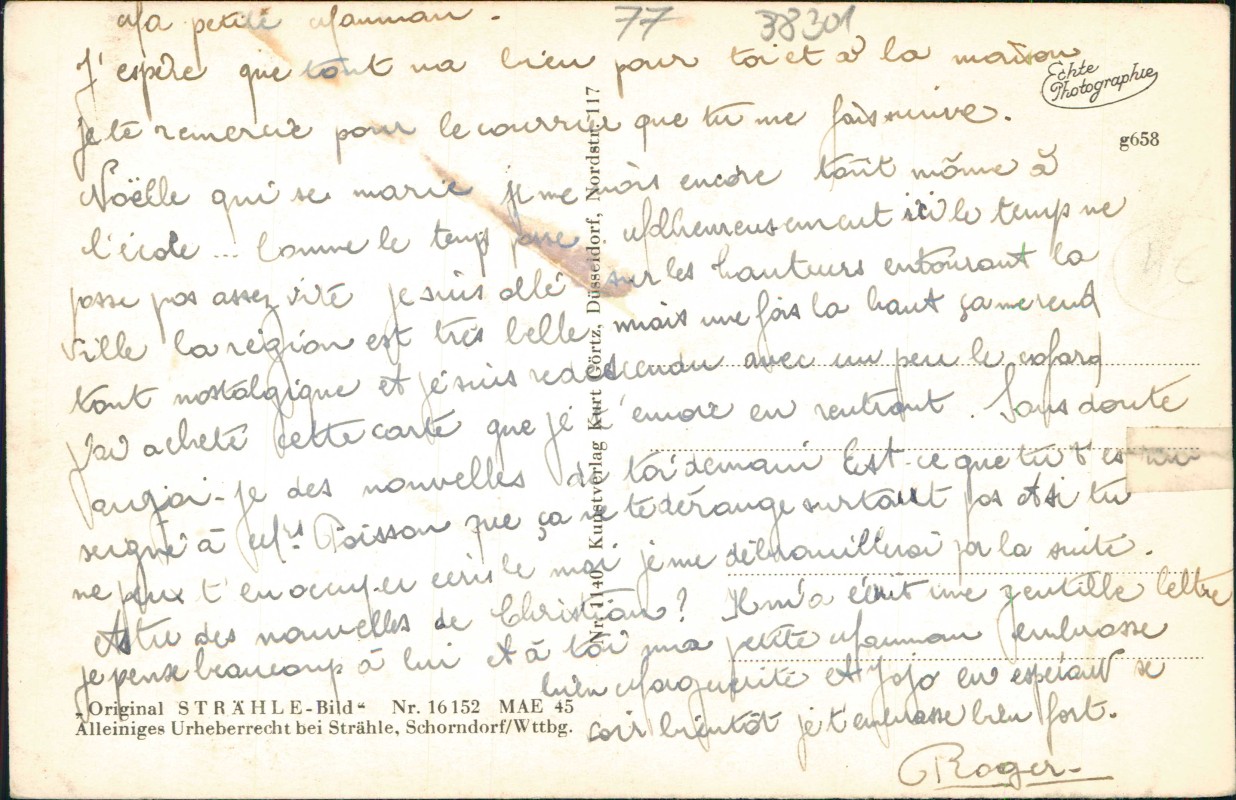 Ma petite Maman.
77 38301
J'espère que tout va bien pour toi et à la maison
Echte
Photographie
je te remercie pour le courrier que tu me fais suivre.
g658
Noëlle qui se marie je me vois encore tout môme à
l'école ... Comme le temps passe. Malheureusement ici le temps ne
passe pas assez vite je suis allé sur les hauteurs entourant la
ville la région est très belle mais une fois la haut ça me rend
tout nostalgique et je suis redescendu avec un peu le cafard
j'ai acheté cette carte que je t'envoie en rentrant. Sans doute
aurai-je des nouvelles de toi demain Est-ce que tu t'es ren
seigné à Mrs Poisson que ça ne te dérange surtout pas et si tu
ne peux t'en occuper écris le moi je me débrouillerai par la suite.
As tu des nouvelles de Christian? Il m'a écrit une gentille lettre
je pense beaucoup à lui et à toi ma petite Maman j'embrasse
bien Marguerite et Jojo en espérant se
voir bientôt je t'embrasse bien fort.
Roger
„Original STRÄHLE-Bild“ Nr. 16152 MAE 45
Alleiniges Urheberrecht bei Strähle, Schorndorf/Wttbg.
Nr. 1140 Kunstverlag Kurt Görtz, Düsseldorf, Nordstr. 117